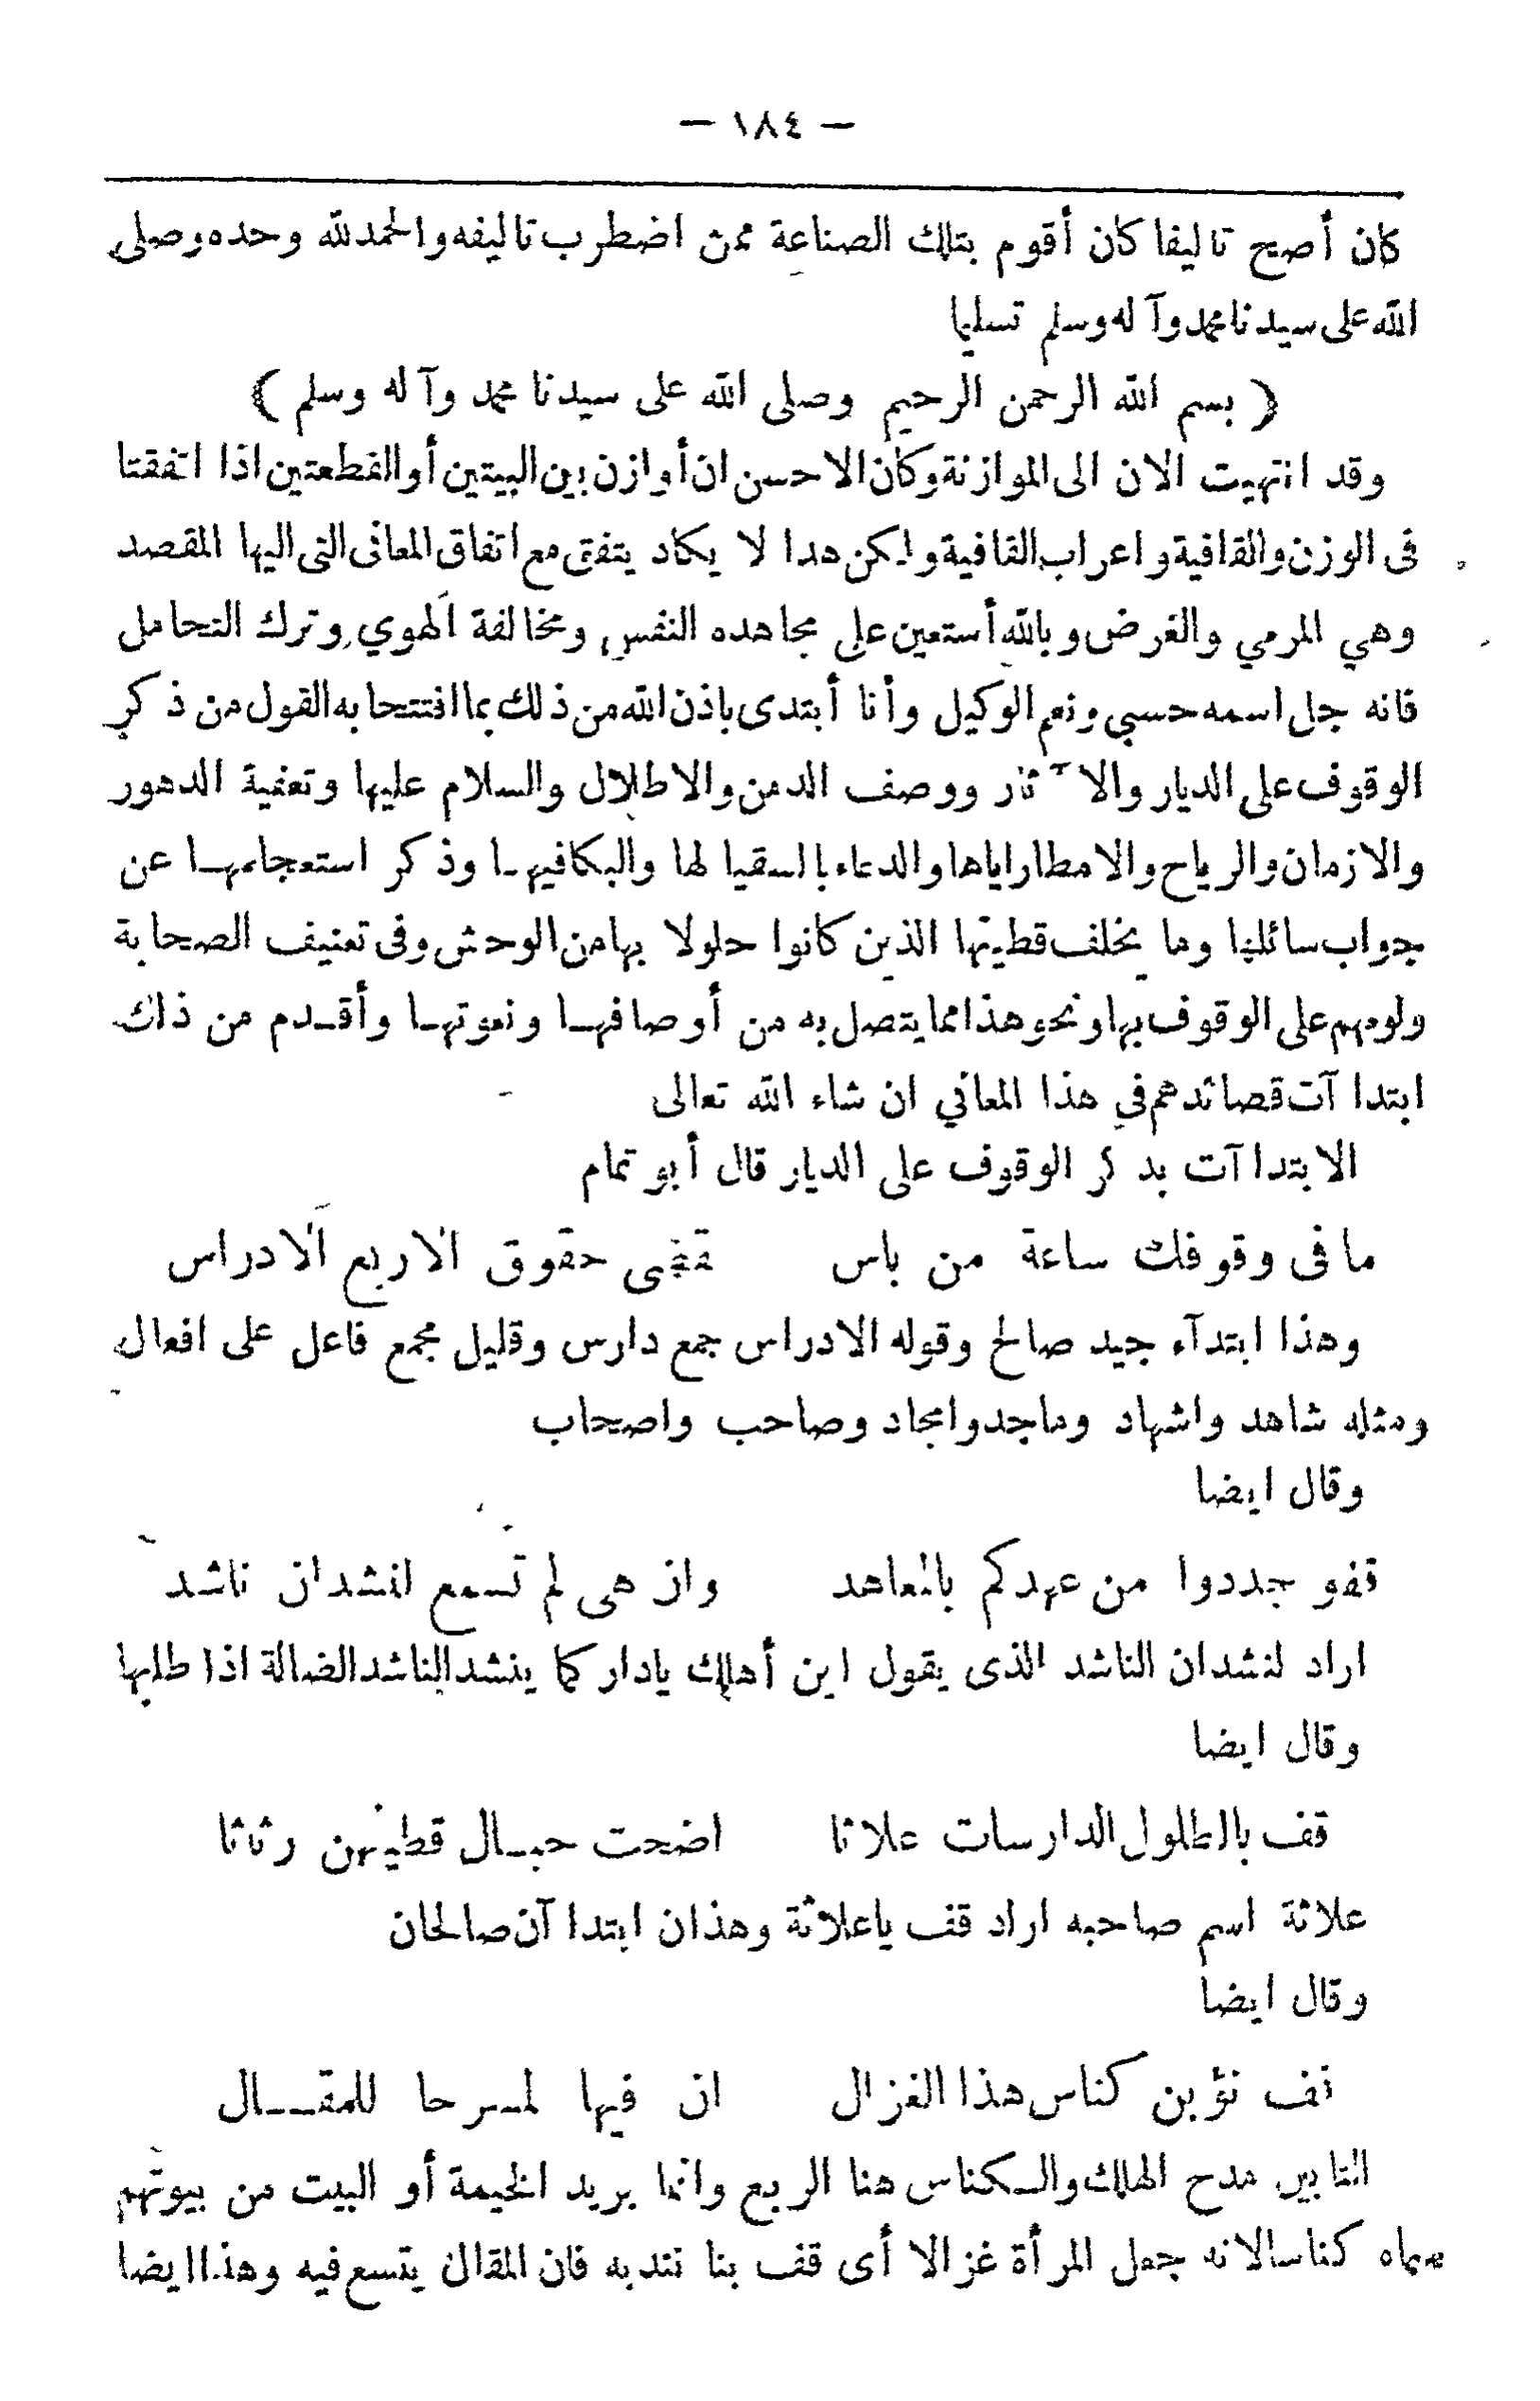 — ١٨٤ —
كان أصح تاليفا كان أقوم بتلك الصناعة ممن اضطرب تاليفه والحمد لله وحده وصلى
الله على سيدنا محمد وآله وسلم تسليما
( بسم الله الرحمن الرحيم وصلى الله على سيدنا محمد وآله وسلم )
وقد انتهيت الان الى الموازنة وكان الاحسن ان أوازن بين البيتين أو القطعتين اذا اتفقتا
فى الوزن والقافية واعراب القافية ولكن هدا لا يكاد يتفق مع اتفاق المعانى التى اليها المقصد
وهي المرمي والغرض وبالله أستعين على مجاهده النفس ومخالفة الهوي وترك التحامل
فانه جل اسمه حسبي ونعم الوكيل وأنا أبتدى باذن الله من ذلك بما افتتحا به القول من ذكر
الوقوف على الديار والآثار ووصف الدمن والاطلال والسلام عليها وتعفية الدهور
والازمان والرياح والامطار اياها والدعاء بالسقيا لها والبكا فيهـا وذكر استعجامهـا عن
جواب سائلها وما يخلف قطينها الذين كانوا حلولا بها من الوحش وفى تعنيف الصحابة
ولومهم على الوقوف بها ونحو هذا مما يتصل به من أوصافهـا ونعوتهـا وأقـدم من ذلك
ابتدا آت قصائدهم في هذا المعاني ان شاء الله تعالى
الابتدا آت بدكر الوقوف على الديار قال أبو تمام
ما فى وقوفك ساعة من باس نقضى حقوق الاربع الادراس
وهذا ابتدآء جيد صالح وقوله الادراس جمع دارس وقليل مجمع فاعل على افعال
ومثله شاهد واشهاد وماجد وامجاد وصاحب واصحاب
وقال ايضا
قفو جددوا من عهدكم بالمعاهد وان هى لم تسمع لنشدان ناشد
اراد لنشدان الناشد الذى يقول اين أهلك يادار كما ينشد الناشد الضالة اذا طلبها
وقال ايضا
قف بالطلول الدارسات علاثا اضحت حبـال قطينهن رثاثا
علاثة اسم صاحبه اراد قف ياعلاثة وهذان ابتدا آن صالحان
وقال ايضا
قف نؤبن كناس هذا الغزال ان فيها لمسرحا للمقـــال
التابين مدح الهلك والـكناس هنا الربع وانما يريد الخيمة أو البيت من بيوتهم
سماه كناسا لانه جعل المرأة غزالا أى قف بنا نندبه فان المقال يتسع فيه وهذا ايضا